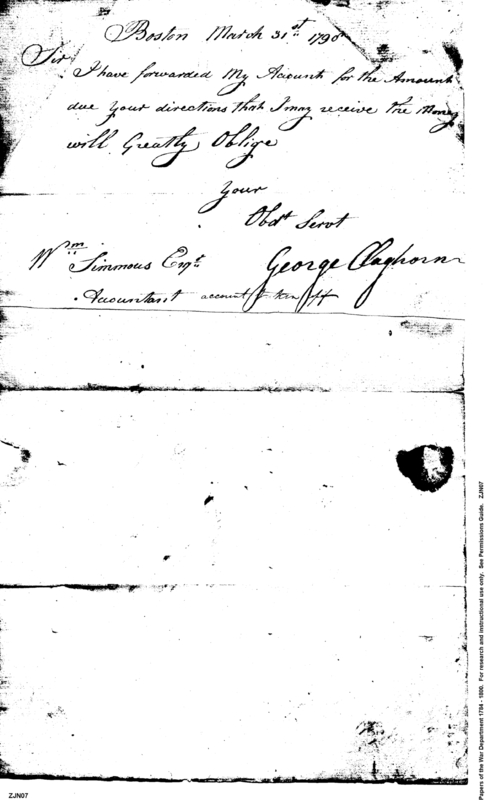 Boston March 31st 1798
Sir
I have forwarded My Acount for the Amount
due your directions that I may receive the Money
will Greatly Oblige
Your
Obdt Servt
Wm Simmons Esqr
George Claghorn
Accountant account
ZJN07
Papers of the War Department 1784 - 1800. For research and instructional use only. See Permissions Guide. ZJN07